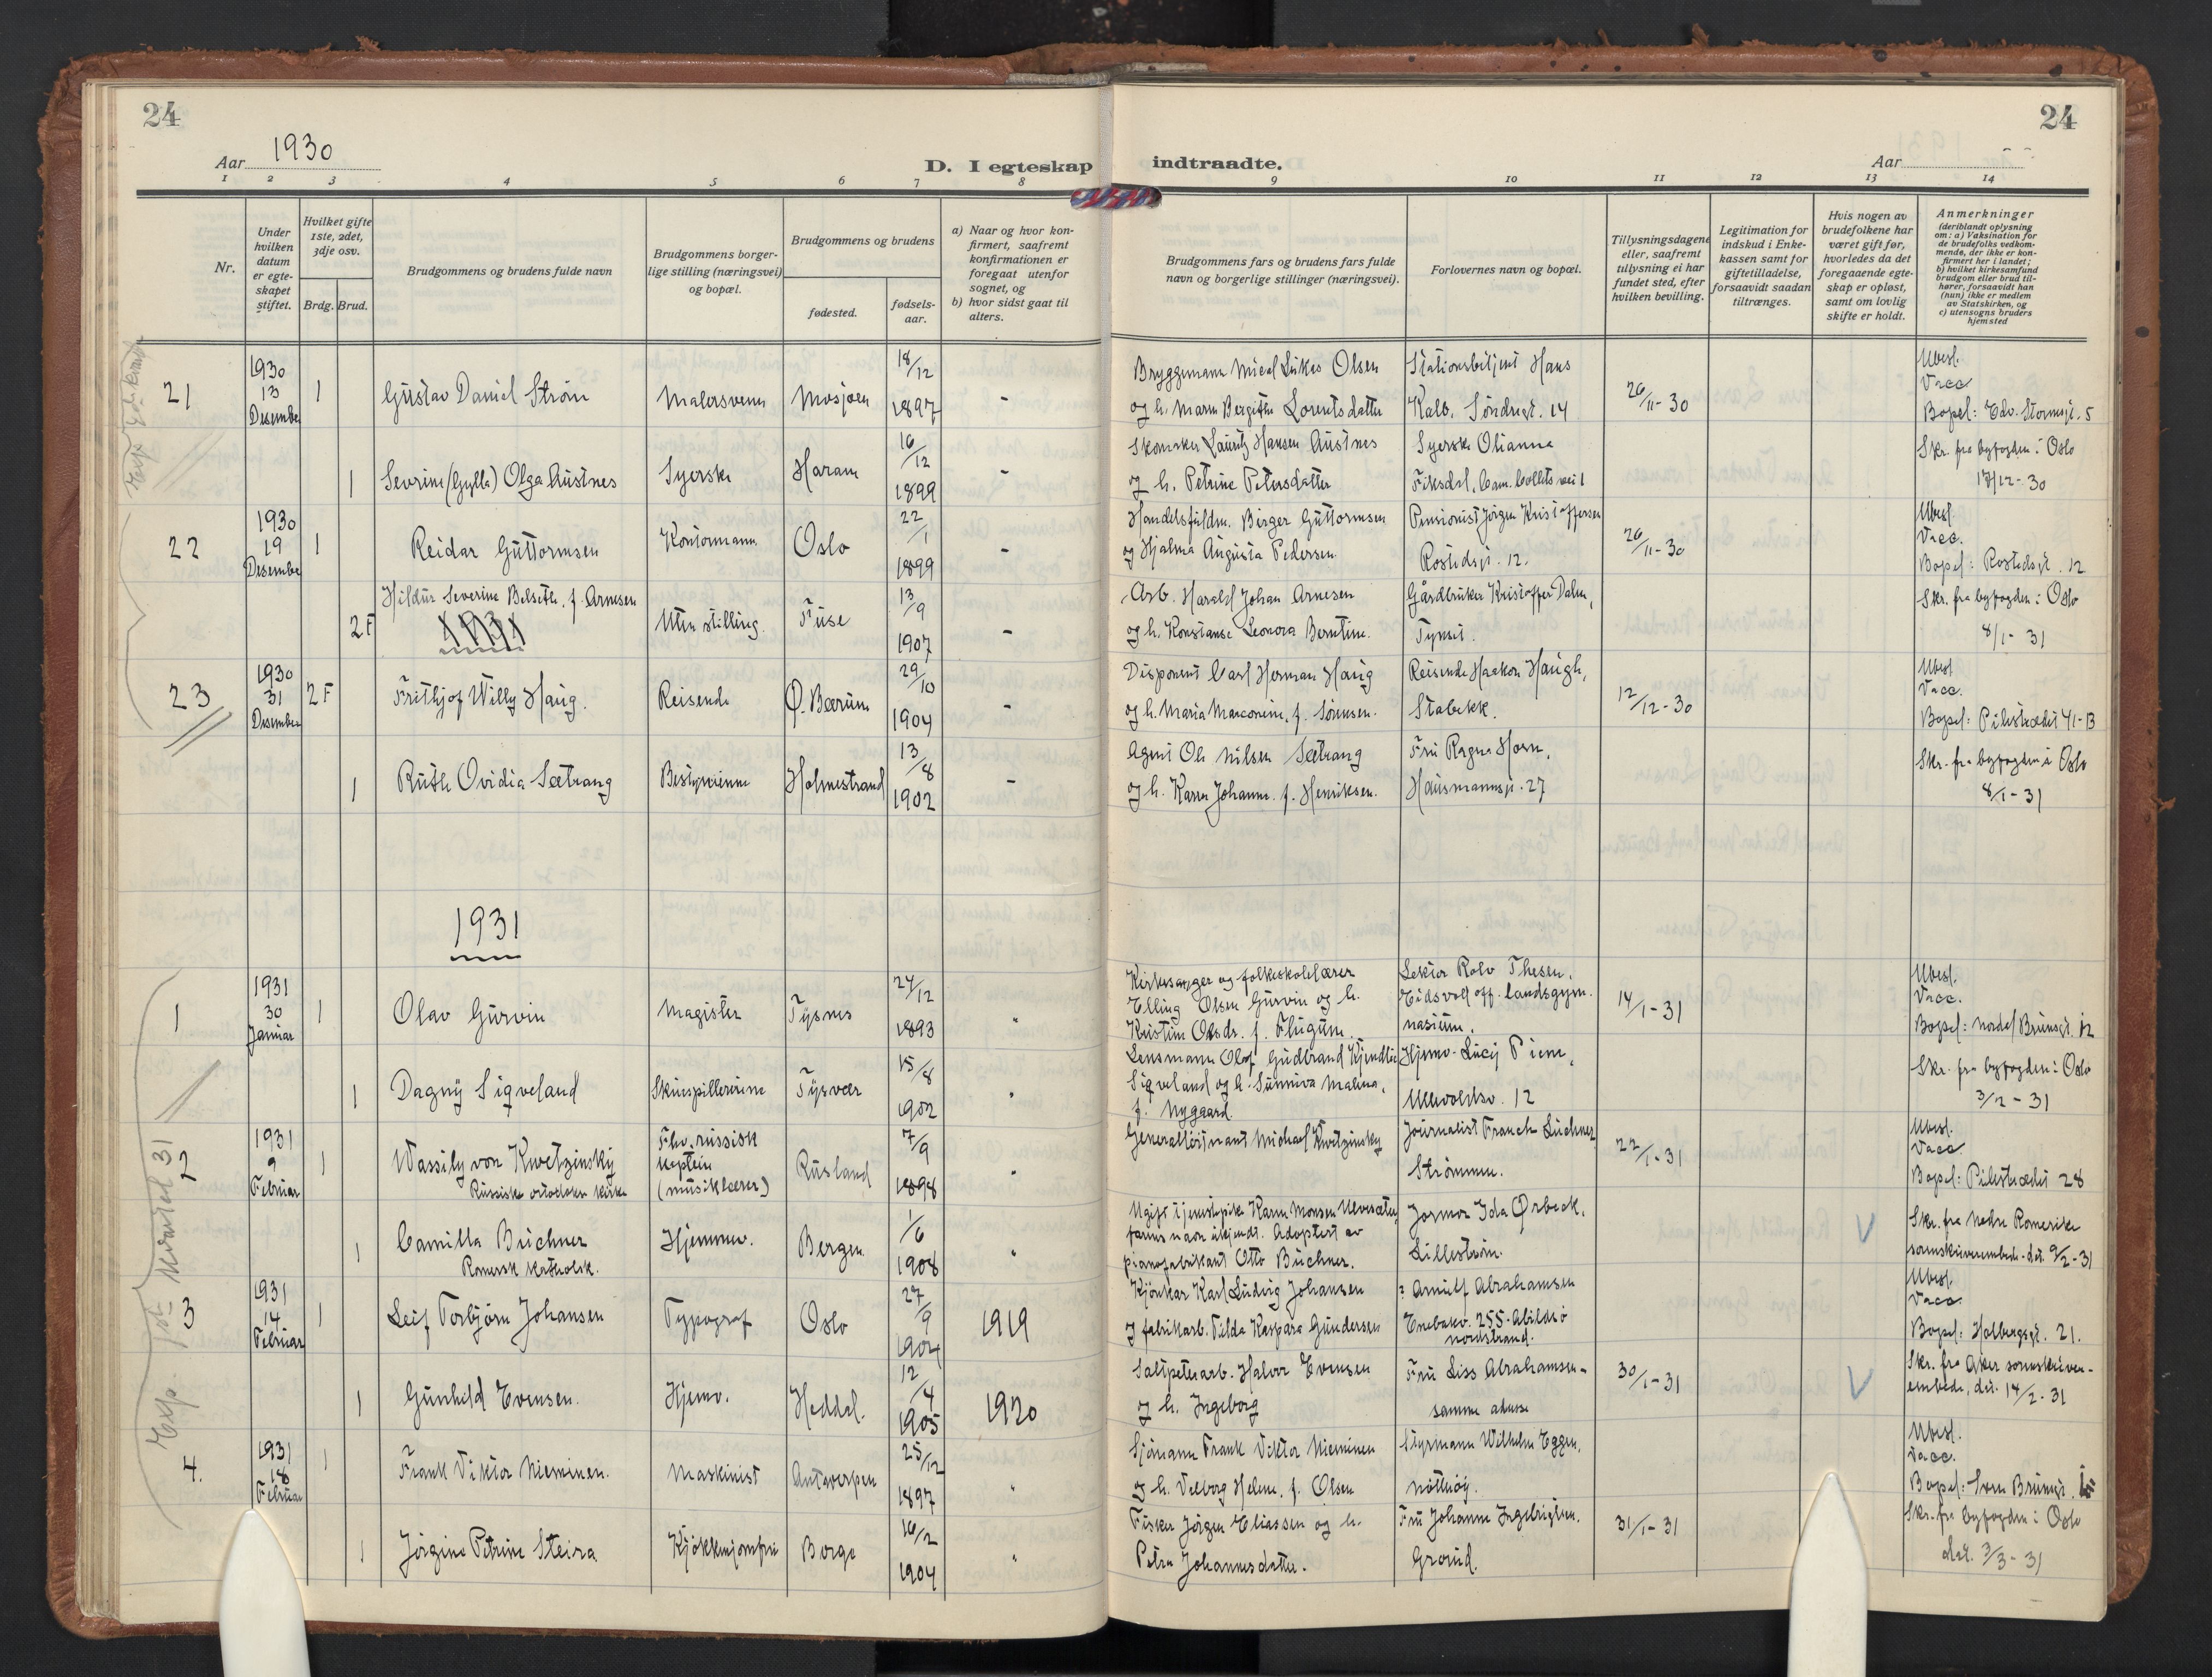 24
24
Aar 1930
D. I egteskap indtraadte.
Aar
1 2 3 4 5 6 7 8 9 10 11 12 13 14
Nr.
Under hvilken datum er egteskapet stiftet.
Hvilket gifte 1ste, 2det, 3dje osv.
Brdg. Brud.
Brudgommens og brudens fulde navn
Brudgommens borgerlige stilling (næringsvei) og bopæl.
Brudgommens og brudens
fødested.
fødselsaar.
a) Naar og hvor konfirmert, saafremt konfirmationen er foregaat utenfor sognet, og
b) hvor sidst gaat til alters.
Brudgommens fars og brudens fars fulde navn og borgerlige stillinger (næringsvei).
Forlovernes navn og bopæl.
Tillysningsdagene eller, saafremt tillysning ei har fundet sted, efter hvilken bevilling.
Legitimation for indskud i Enkekassen samt for giftetilladelse, forsaavidt saadan tiltrænges.
Hvis nogen av brudefolkene har været gift før, hvorledes da det foregaaende egteskap er opløst, samt om lovlig skifte er holdt.
Anmerkninger (deriblandt oplysning om: a) Vaksination for de brudefolks vedkommende, der ikke er konfirmert her i landet; b) hvilket kirkesamfund brudgom eller brud tilhører, forsaavidt han (hun) ikke er medlem av Statskirken, og c) utensogns bruders hjemsted
21 1930 13 Desember 1 Gustav Daniel Strøm Malersvenn Mosjøen 18/12 1897 -
Bryggemann Mical Lukas Olsen og h. Maren Bergitte Lorentsdatter
Stationsbetjent Hans Kalb. Søndregt. 14
26/11-30
Ubesl. Vacc. Bopel: Edv. Stormsgt. 5
1 Severine (Gylla) Olga Austnes Syerske Haram 16/12 1899 -
Skomaker Lauritz Hansen Austnes og h. Petrine Petersdatter
Syerske Olianna Fiksdal, Cam. Colletts vei 1
Skr. fra byfogden i Oslo 17/12-30
22 1930 19 Desember 1 Reidar Guttormsen Kontormann Oslo 22/1 1899 -
Handelsfuldm. Birger Guttormsen og Hjalma Augusta Pedersen
Pensionist Jørgen Kristoffersen Rostedsgt. 12.
26/11-30
Ubesl. Vacc. Bopel: Rostedsgt. 12
2F Hildur Severine Belseth, f. Arnesen Uten stilling. Fuse 13/9 1907 -
1931
Arb. Harald Johan Arnesen og h. Konstanse Leonora Berntine.
Gårdbruker Kristoffer Dalen, Tynset.
Skr. fra byfogden i Oslo 8/1-31
23 1930 31 Desember 2F Frithjof Willy Haug. Reisende Ø. Bærum 29/10 1904 -
Disponent Carl Herman Haug og h. Maria Marconine, f. Sørensen.
Reisende Haakon Haugh, Stabekk.
12/12-30
Ubesl. Vacc. Bopel: Pilestrædet 41-B
1 Ruth Ovidia Sætrang Bestyrerinne Holmestrand 13/8 1902 -
Agent Ole Nilsen Sætrang og h. Karen Johanne f. Henriksen.
Fru Ragna Horn, Hausmannsgt. 27
Skr. fra byfogden i Oslo 8/1-31
1931
1 1931 30 Januar 1 Olav Gurvin Magister Tysnes 24/12 1893 "
Kirkesanger og folkeskolelærer Elling Olsen Gurvin og h. Kristine Olsdr. f. Flugum.
Lektor Rolv Thesen, Eidsvoll off. landsgymnasium.
14/1-31
Ubesl. Vacc. Bopel: Nordal Brunsgt. 12
1 Dagny Sigveland Skuespillerinne Tysvær 15/8 1902 "
Lensmann Olof Gudbrand Kjendlie Sigveland og h. Sunniva Malena, f. Nygaard.
Hjemv. Lucy Piene, Ullevoldsv. 12
Skr. fra byfogden i Oslo 3/2-31
2 1931 9 Februar 1 Wassily von Kwetzinsky Russisk ortodokse kirke
Fhv. russisk kaptein (musiklærer) Rusland 7/9 1898 "
Generalløitnant Michael Kwetzinsky
Journalist Franck Luchner Strømmen.
22/1-31
Ubesl. Vacc. Bopel: Pilestrædet 28
1 Camilla Buchner Romersk katholsk. Hjemmev. Bergen 1/6 1908 "
Ugift tjenestepike Karen Monsen Ulvesæter, farens navn ukjendt. Adoptert av pianofabrikant Otto Buchner.
Jormor Ida Ørbeck, Lillestrøm.
Skr. fra Nedre Romerike sorenskriverembede dat. 9/2-31
3 1931 14 Februar 1 Leif Torbjørn Johansen Typograf Oslo 27/9 1904 1919
Kjørekar Karl Ludvig Johansen og fabrikarb. Tilda Kaspara Gundersen
? Arnulf Abrahamsen Enebakv. 255. Abildsø Nordstrand.
Ubesl. Vacc. Bopel: Holbergsgt. 21.
1 Gunhild Evensen. Hjemv. Heddal. 12/4 1905 1920
Salpeterarb. Halvor Evensen og h. Ingeborg
Fru Liss Abrahamsen - samme adresse
30/1-31
Skr. fra Aker sorenskriverembede, dat. 14/2-31
4. 1931 18 Februar 1 Frank Viktor Nieminen. Maskinist Antwerpen 25/12 1897 "
Sjømann Frank Viktor Nieminen og h. Valborg Helene, f. Olsen
Styrmann Wilhelm Eggen, Nøtterøy.
Ubesl. Vacc. Bopel: Sven Brunsgt.
1 Jørgine Petrine Steira Kjøkkenjomfru Borge 16/2 1904 "
Fisker Jørgen Eliassen og h. Petra Johannesdatter.
Fru Johanne Ingebrigtsen. Grorud.
31/1-31
Skr. fra byfogden i Oslo dat. 3/3-31
Exp. 1ste kvartal 31